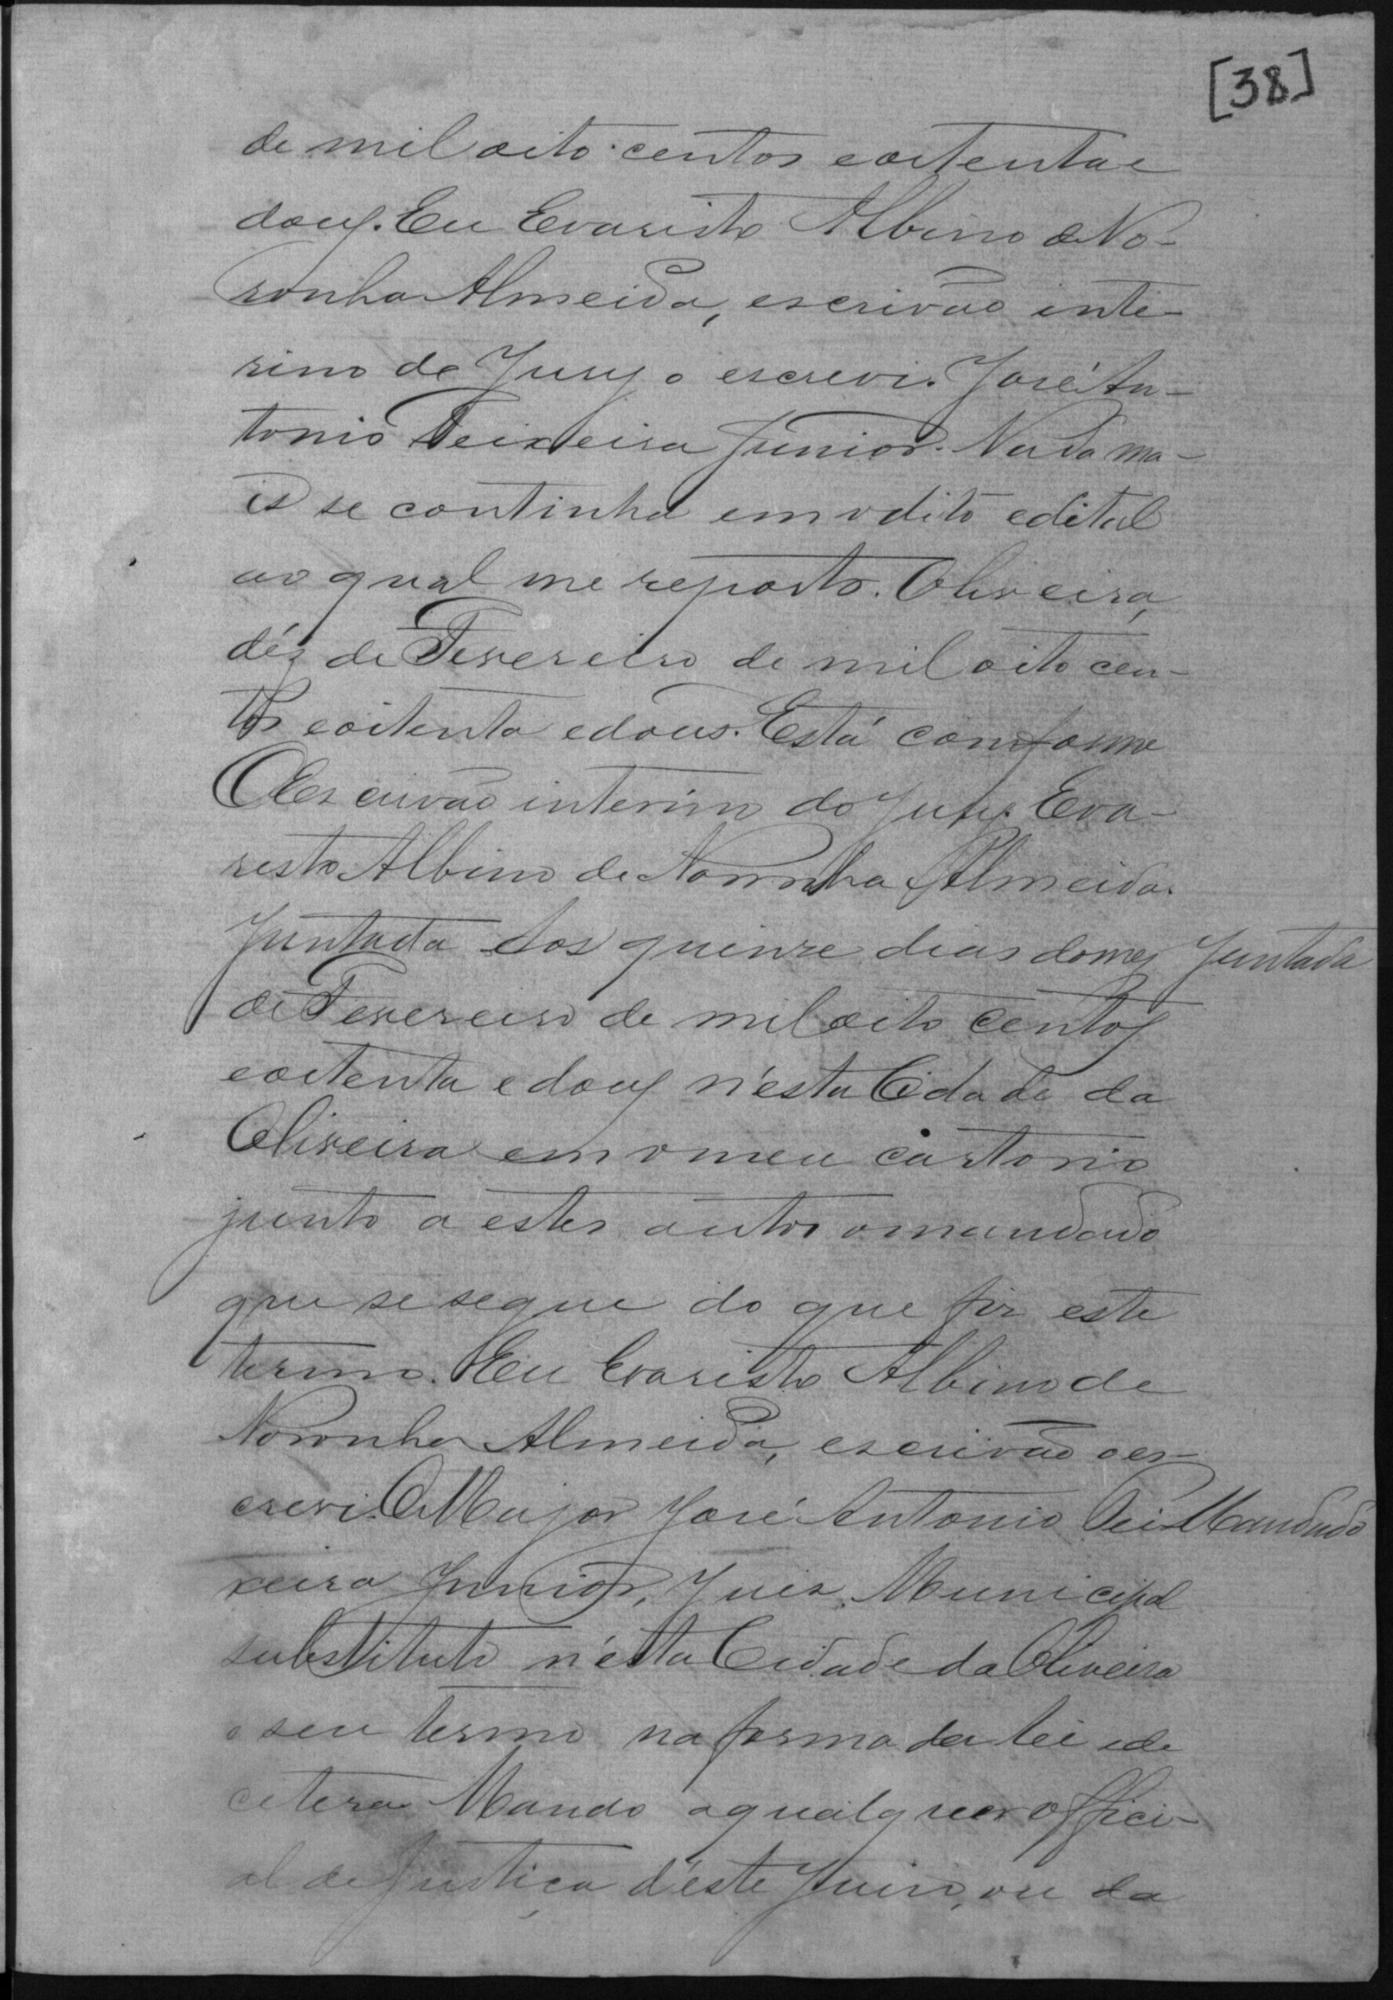 [38]
de mil oito centos eoitenta e
dous. Eu Evaristo Albino de No-
ronha Almeida, escrivão inte-
rino do Jury o escrevi. José An-
tonio Teixeira Junior. Nada ma-
is se continha em o dito edital
ao qual me reporto. Oliveira,
déz de Fevereiro de mil oito cen-
tos eoitenta edous. Está conforme
O Escrivão interino do Jury. Eva-
risto Albino de Noronha Almeida.
Juntada Aos quinze dias do mez Juntada
de Fevereiro de mil oito centos
eoitenta e dous n'esta Cidade da
Oliveira em o meu cartorio
junto a estes autos o mandado
que se segue do que fiz este
termo. Eu Evaristo Albino de
Noronha Almeida, escrivão o es-
crevi. O Major José Antonio Tei- Mandado
xeira Junior, Juiz Municipal
substituto n'esta Cidade da Oliveira
e seu termo na forma da lei e de
cetera Mando a qualquer offici-
al de Justiça d'este Juizo, ou da